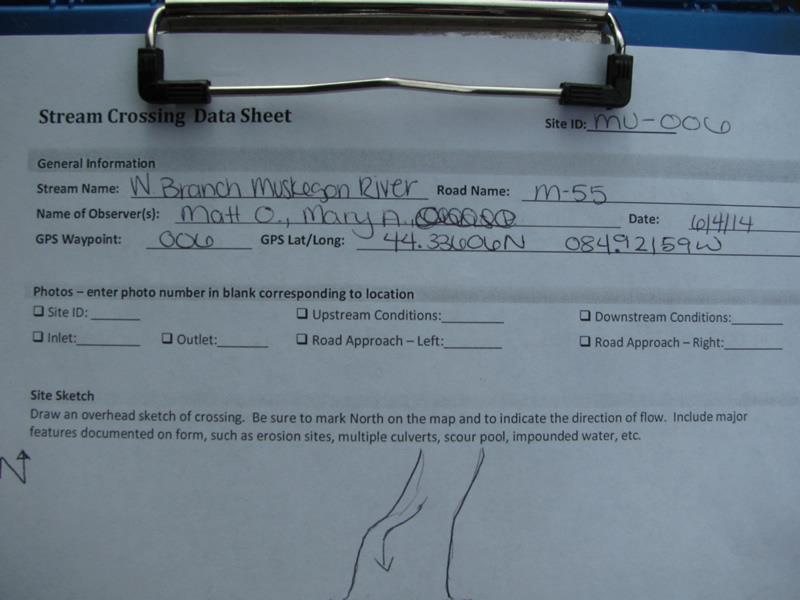 Stream Crossing Data Sheet
Site ID: MU-006
General Information
Stream Name: W Branch Muskegon River Road Name: M-55
Name of Observer(s): Matt O., Mary A. Date: 6/4/14
GPS Waypoint: 006 GPS Lat/Long: 44.33606N 084.92159W
Photos – enter photo number in blank corresponding to location
❑ Site ID: ❑ Upstream Conditions: ❑ Downstream Conditions:
❑ Inlet: ❑ Outlet: ❑ Road Approach – Left: ❑ Road Approach – Right:
Site Sketch
Draw an overhead sketch of crossing. Be sure to mark North on the map and to indicate the direction of flow. Include major
features documented on form, such as erosion sites, multiple culverts, scour pool, impounded water, etc.
N